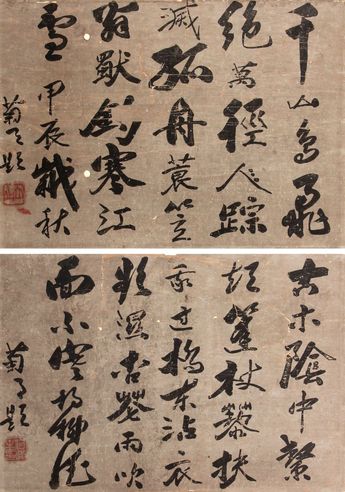 千山鳥飛
絕萬徑人踪
滅孤舟蓑笠
翁獨釣寒江
雪 甲辰秋
菊題
古木陰中繫
短篷杖藜扶
我過橋東沾衣
欲濕杏花雨吹
面不寒楊柳風
菊題